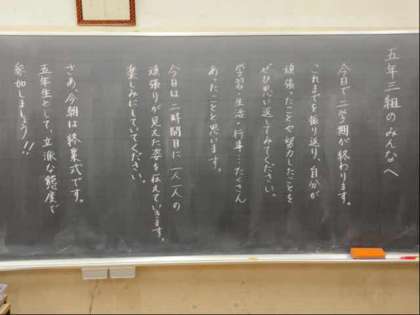 五年三組のみんなへ
今日で二学期が終わります。
これまでを振り返り、自分が
頑張ったことや努力したことを
ぜひ思い返してみてください。
学習・生活・行事…たくさん
あったことと思います。
今日は二時間目に一人一人の
頑張りが見えた姿を伝えていきます。
楽しみにしていてください。
さあ、今朝は終業式です。
五年生として、立派な態度で
参加しましょう!!